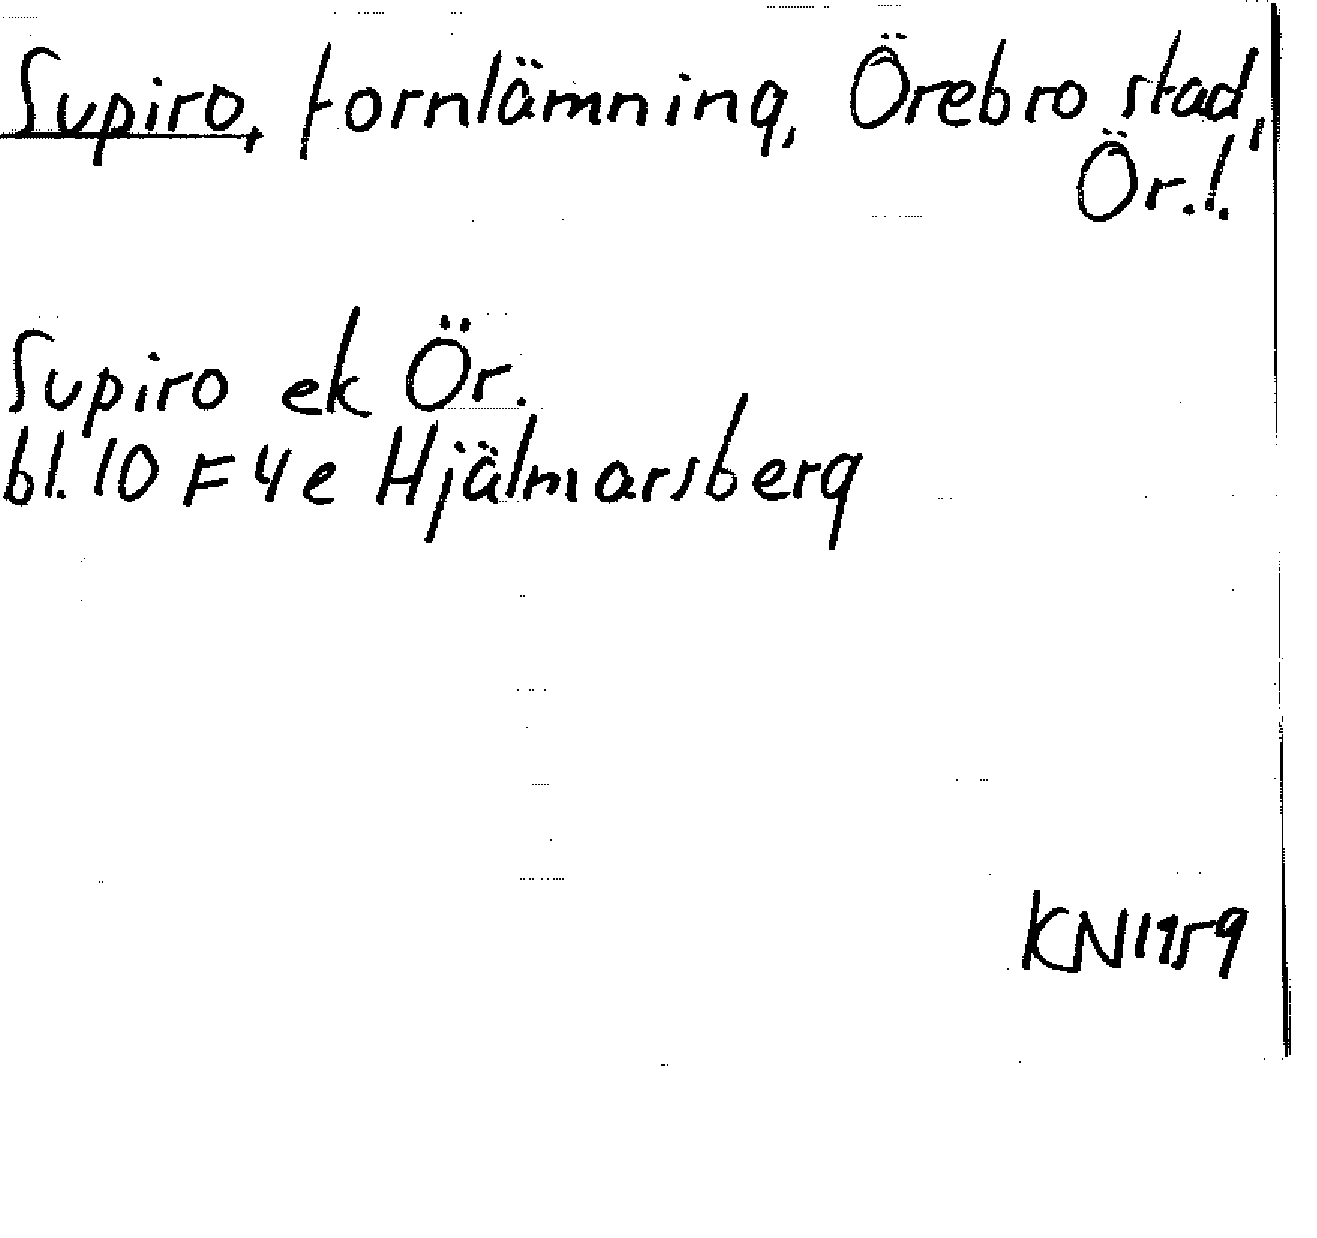 Supiro, fornlämning, Örebro stad,
Ör.l.
Supiro ek Ör.
bl. 10 F 4 e Hjälmarsberg
KN 1959